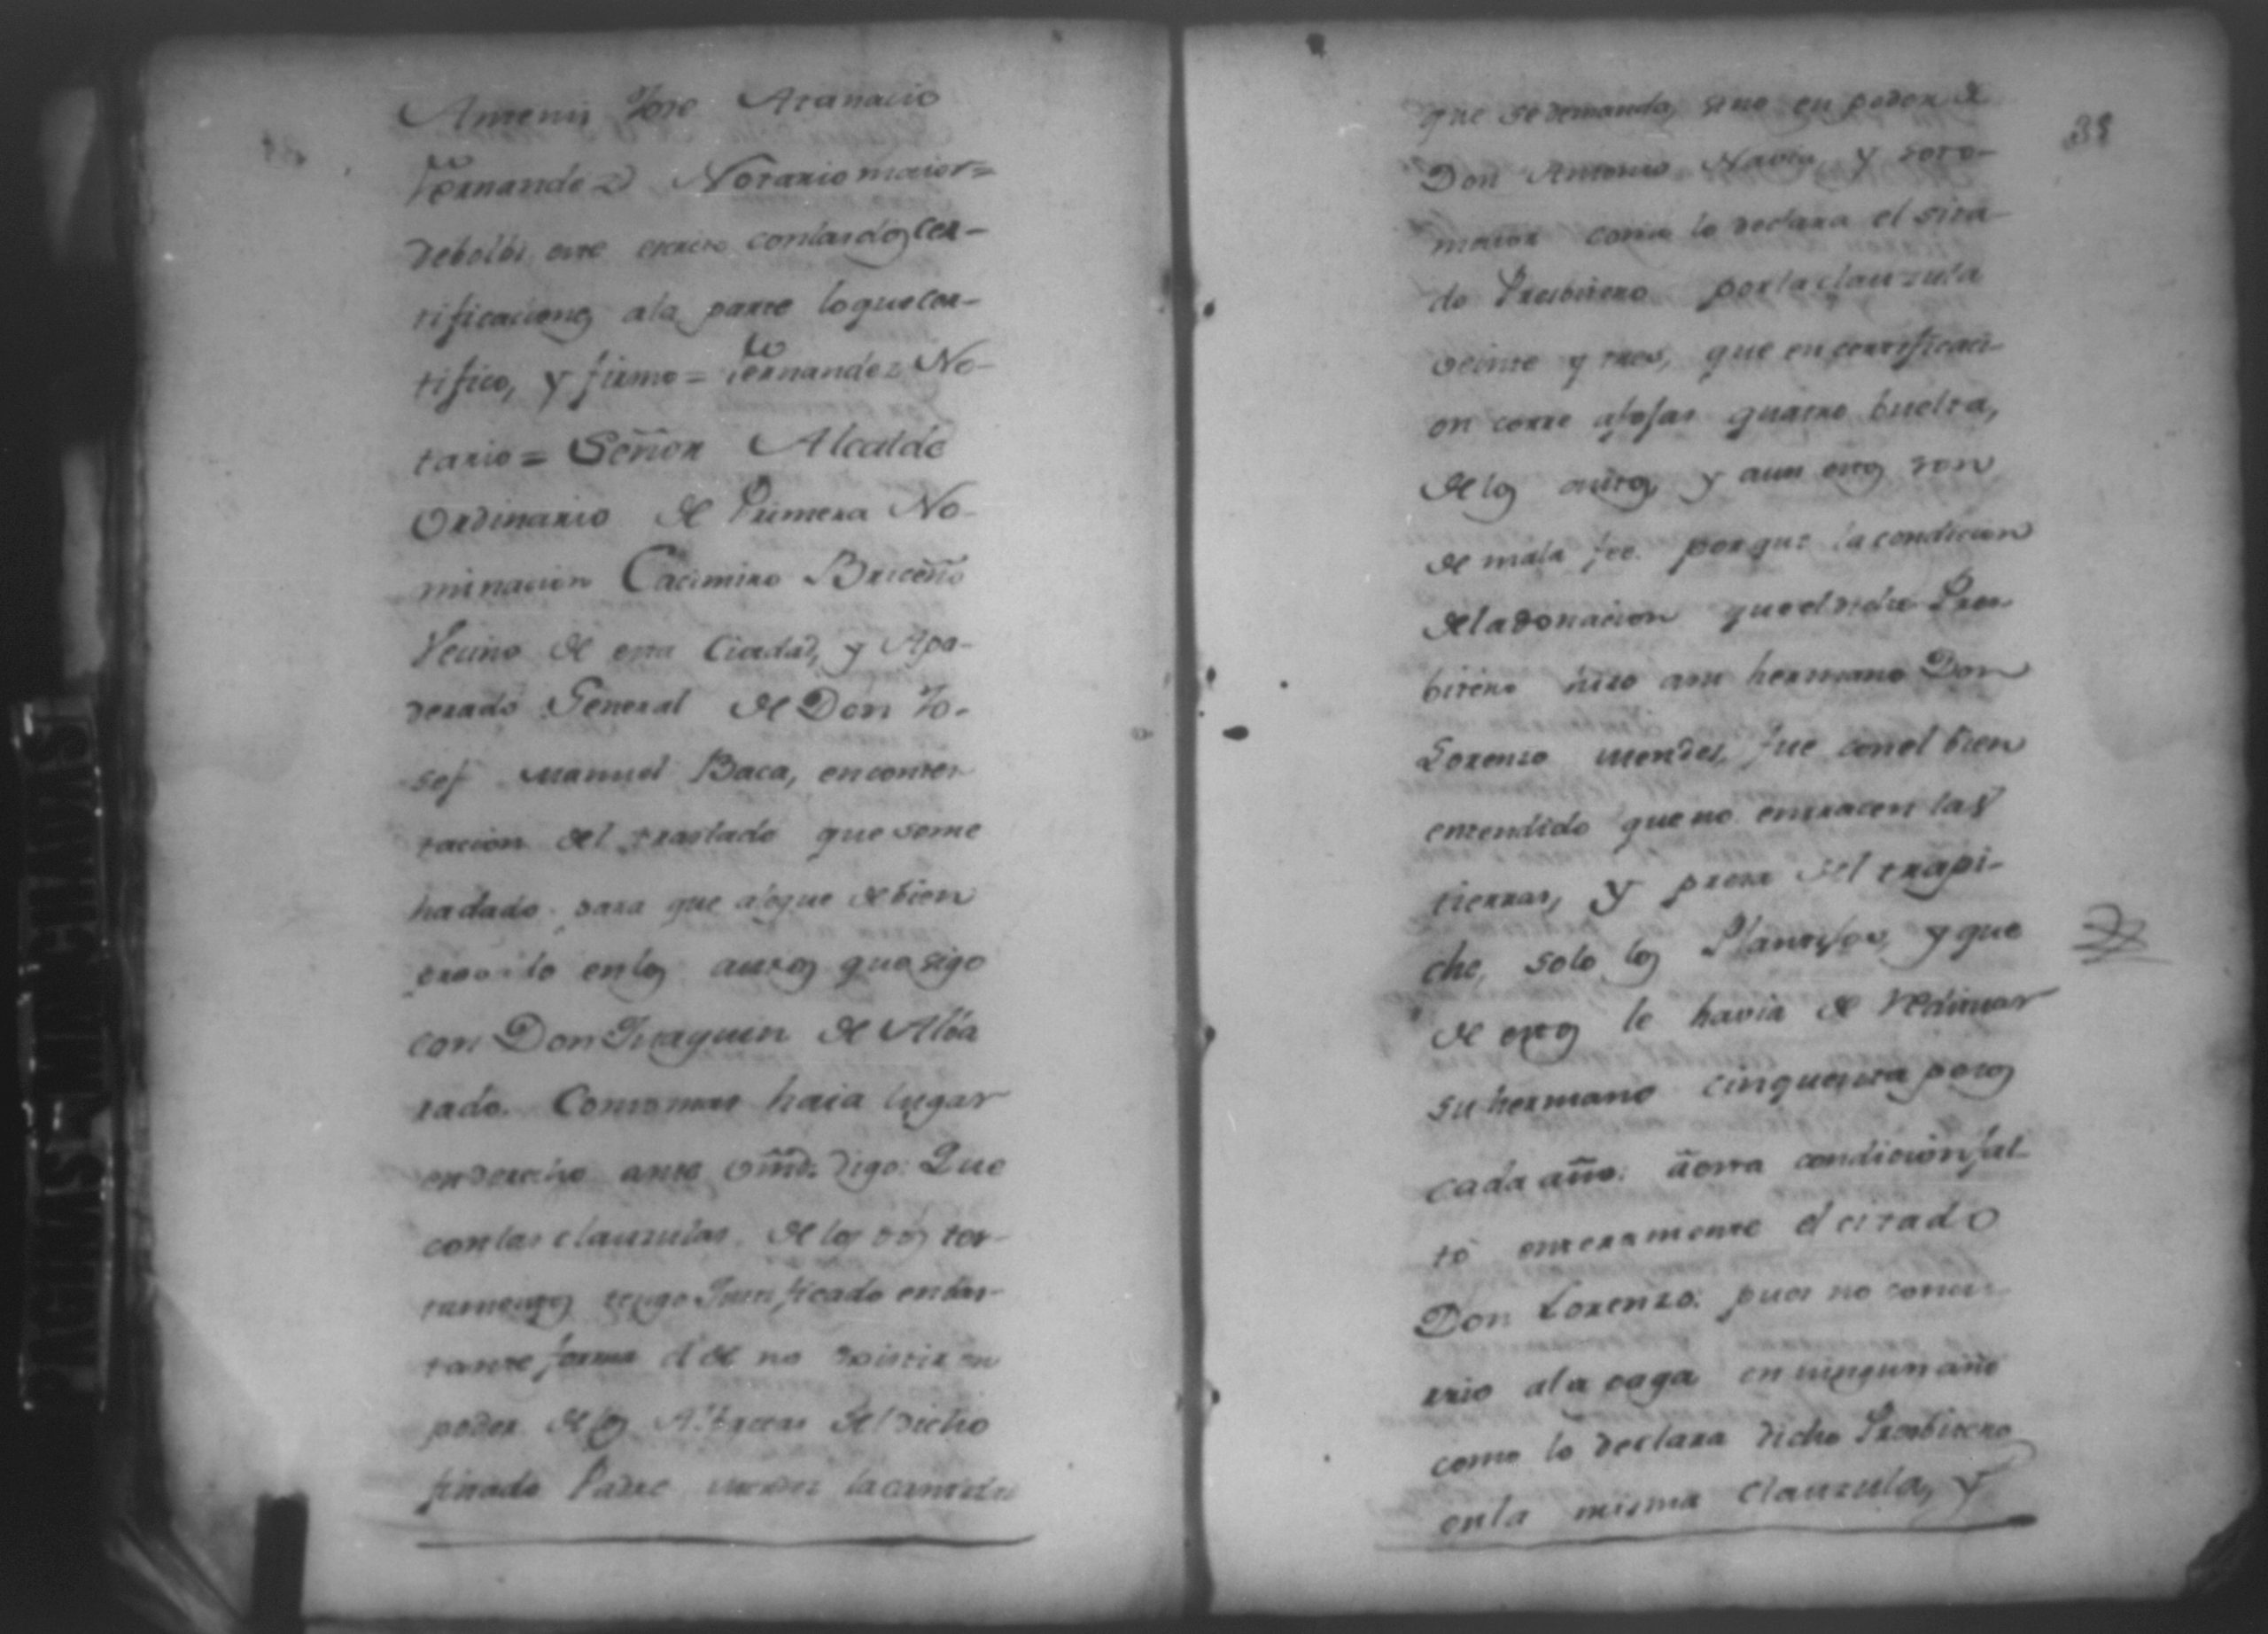 Antemi Jose Atanacio
Fernandez Notario maior=
debolbi este escrito con las dos cer-
tificaciones ala parte lo que cer-
tifico, y firmo= Fernandez No-
tario= Señor Alcalde
Ordinario de Primera No-
minacion Cacimiro Briceño
Vecino de esta Ciudad, y Apo-
derado General de Don Jo-
sef Manuel Baca, en contes-
tacion del traslado que seme
hadado para que alegue debien
provado enlos autos que sigo
con Don Juaquin de Alba
rado. Como mas haia lugar
en derecho ante Vmd. digo: Que
con las clauzulas de los dos tes-
tamentos tengo Justificado en bas-
tante forma el de no existir en
poder delos Albaceas del dicho
finado Padre Mendez la cantidad
38
que se demanda, sino en poder de
Don Antonio Navia, y Soto-
maior como lo declara el sita-
do Presbitero por la clauzula
veinte y tres, que en certificaci-
on corre afojas quatro buelta,
delos autos, y aun estos son
de mala fee. porque la condicion
dela donacion que el dicho Pres-
bitero hizo asu hermano Don
Lorenzo Mendes, fue con el bien
entendido que no entrasen las
tierras, y presa del trapi-
che, solo los Plantifos, y que
de estos le havia de
su hermano cinquenta pesos
cada año: á esta condicion fal-
tó enteramente el citado
Don Lorenzo: pues no concu-
rrio ala paga en ningun año
como lo declara dicho Presbitero
enla misma clauzula, y